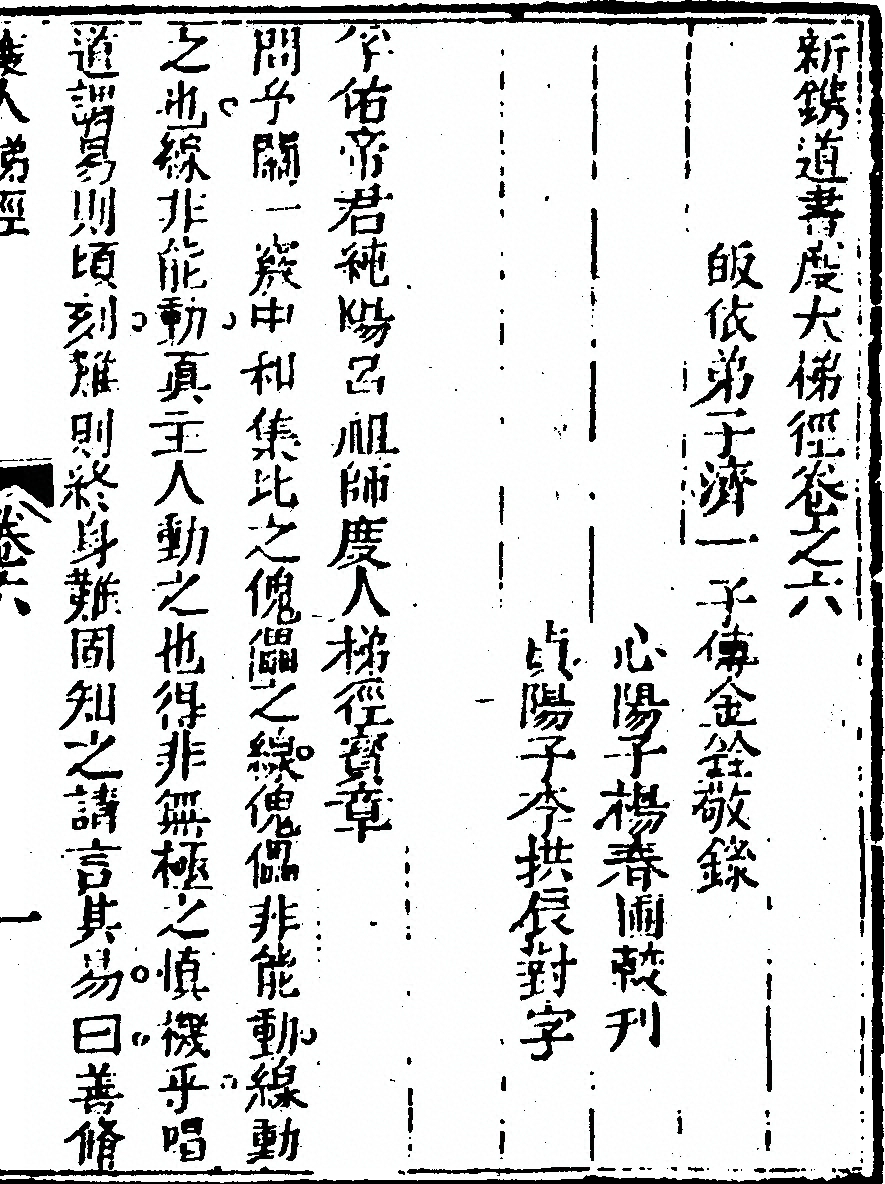 新鐫道書度人梯徑卷之六
皈依弟子濟一子傅金銓敬錄
心陽子楊春圃較刊
貞陽子李拱辰對字
孚佑帝君純陽呂祖師度人梯徑寶章
問予關一竅中和集比之傀儡之線傀儡非能動線動
之也線非能動真主人動之也得非無極之慎機乎唱
道謂易則頃刻難則終身難固知之請言其易曰善脩
度人梯徑
卷六
一